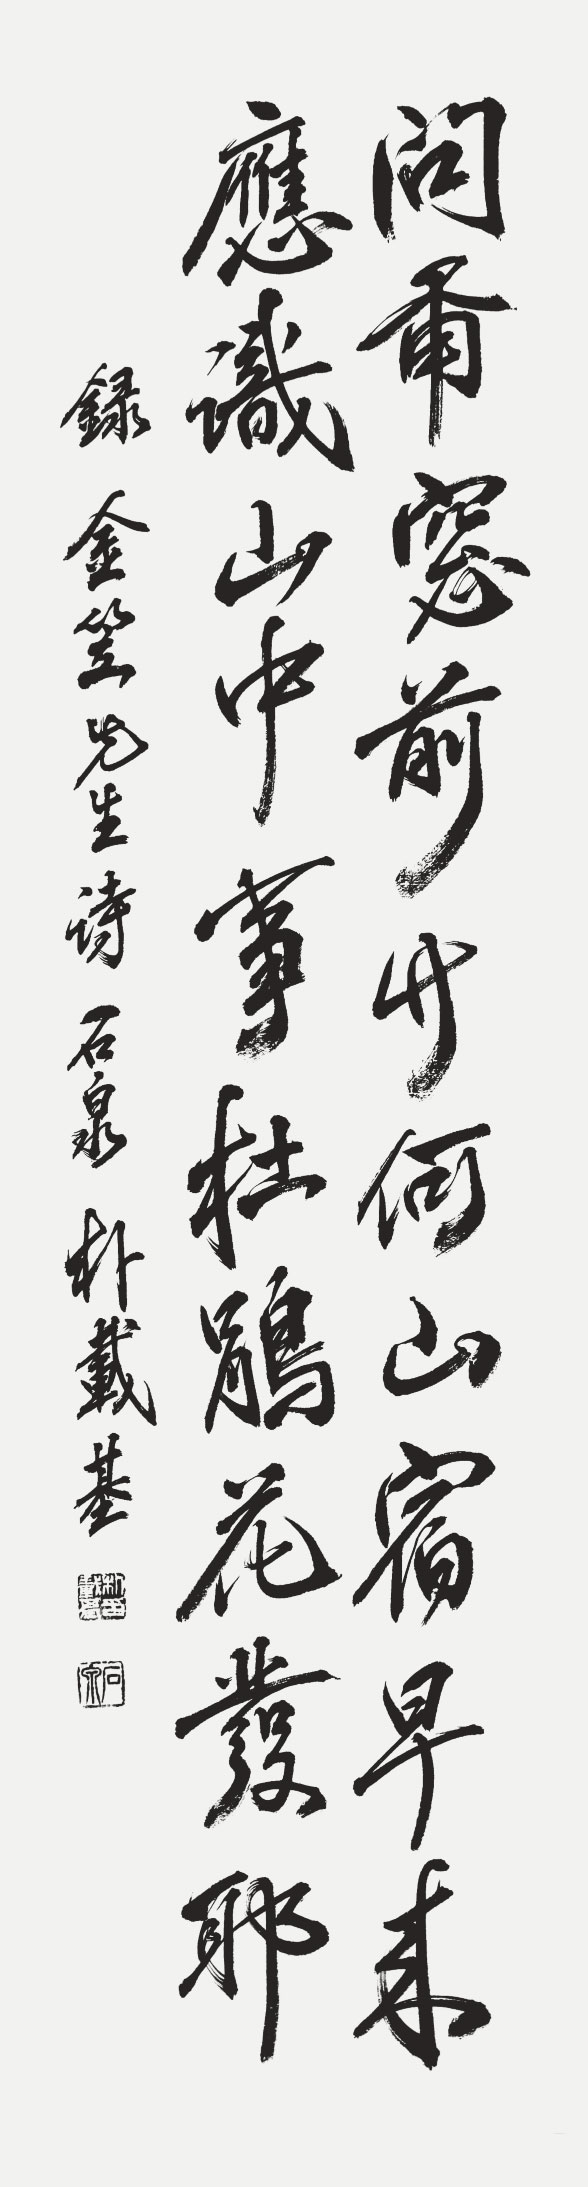 問爾窓前鳥何山宿早来
應識山中事杜鵑花發耶
録 金笠先生詩 石泉 朴載基